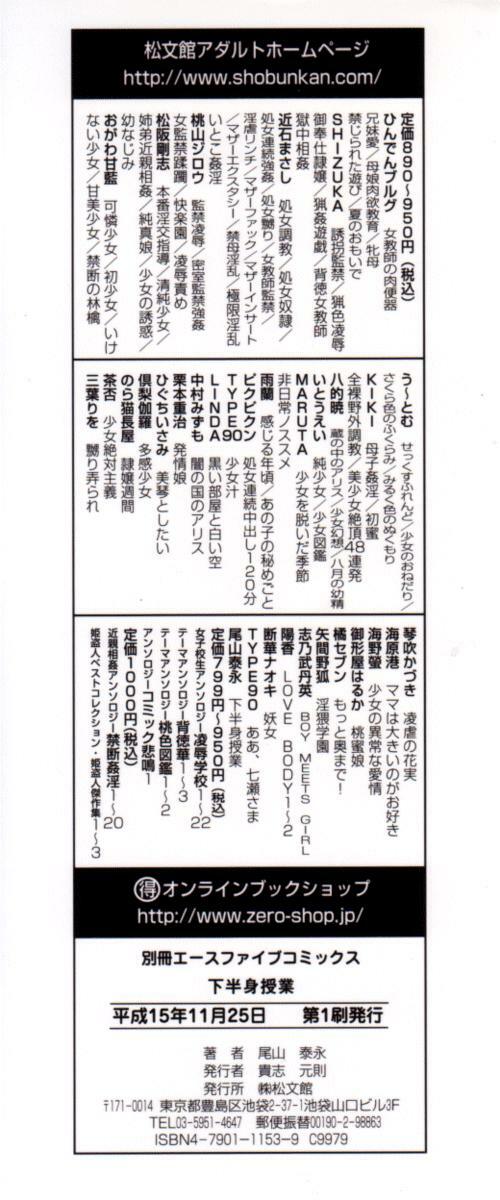 松文館アダルトホームページ
http://www.shobunkan.com/
定価890～950円(税込)
ひんでんブルグ 女教師の肉便器
兄妹愛/母娘肉欲教育/牝母
禁じられた遊び/夏のおもいで
SHIZUKA 誘拐監禁/猟色凌辱
御奉仕隷嬢/猟姦遊戯/背徳女教師
獄中相姦
近石まさし 処女調教/処女奴隷/
処女連続強姦/処女嬲り/女教師監禁/
淫虐リンチ/マザーファック/マザーインサート
/マザーエクスタシー/禁母淫乱/極限淫乱
いとこ姦淫
桃山ジロウ 監禁凌辱/密室監禁強姦
女監禁蹂躙/快楽園/凌辱責め
松阪剛志 本番淫交指導/清純少女/
姉弟近親相姦/純真娘/少女の誘惑/
幼なじみ
おがわ甘藍 可憐少女/初少女/いけ
ない少女/甘美少女/禁断の林檎
う～とむ せっくすふれんど/少女のおねだり/
さくら色のふくらみ/みるく色のぬくもり
KIKI 母子姦淫/初蜜
全裸野外調教/美少女絶頂48連発
八的暁 蔵の中のアリス/少女幻想/八月の幼精
いとうえい 純少女/少女図鑑
MARUTA 少女を脱いだ季節
非日常ノススメ
雨蘭 感じる年頃/あの子の秘めごと
ピクピクン 処女連続中出し120分
TYPE90 少女汁
LINDA 黒い部屋と白い空
中村みずも 闇の国のアリス
栗本重治 発情娘
ひぐちいさみ 美琴としたい
倶梨伽羅 多感少女
のら猫長屋 隷嬢週間
茶否 少女絶対主義
三葉りを 嬲り弄られ
琴吹かづき 凌虐の花実
海原港 ママは大きいのがお好き
海野螢 少女の異常な愛情
御形屋はるか 桃蜜娘
橘セブン もっと奥まで!
矢間野狐 淫猥学園
志乃武丹英 BOY MEETS GIRL
陽香 LOVE BODY1～2
断華ナオキ 妖女
TYPE90 ああ、七瀬さま
尾山泰永 下半身授業
定価799円～950円(税込)
女子校生アンソロジー凌辱学校1～22
テーマアンソロジー背徳華1～3
テーマアンソロジー桃色図鑑1～2
アンソロジーコミック悲鳴1
定価1000円(税込)
近親相姦アンソロジー禁断姦淫1～20
姫盗人ベストコレクション・姫盗人傑作集1～3
得オンラインブックショップ
http://www.zero-shop.jp/
別冊エースファイブコミックス
下半身授業
平成15年11月25日 第1刷発行
著 者 尾山 泰永
発行者 貴志 元則
発行所 ㈱松文館
〒171-0014 東京都豊島区池袋2-37-1池袋山口ビル3F
TEL03-5951-4647 郵便振替00190-2-98863
ISBN4-7901-1153-9 C9979